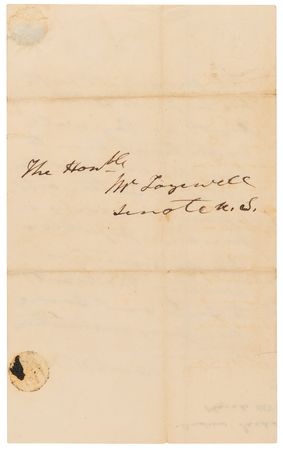 The Honble
Mr Tazewell
Senate U.S.